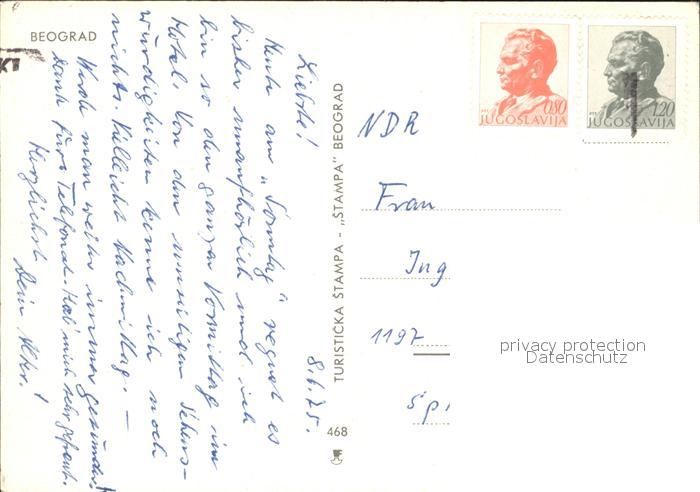 BEOGRAD
8.6.75.
Liebste!
Heute am „Sonntag" regnet es
bisher unaufhörlich und ich
bin so den ganzen Vormittag im
Hotel. Von den unzähligen Sehens-
würdigkeiten kenne ich noch
nichts. Vielleicht Nachmittag. —
Werde man weiter immer gesünder!
Dank fürs Telefonat. Hab mich sehr gefreut.
Herzlichst
Dein
TURISTIČKA ŠTAMPA - „ŠTAMPA" BEOGRAD
468
0,80
JUGOSLAVIJA
1,20
JUGOSLAVIJA
NDR
Frau
Ing
1197
Spr
privacy protection
Datenschutz